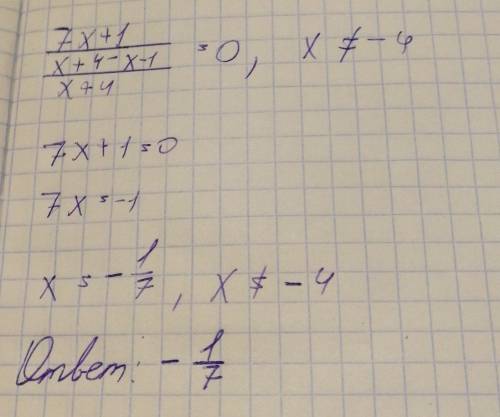 7x+1
x+4-x-1 =0, x≠-4
x+4
7x+1=0
7x=-1
x=-1/7, x≠-4
Ответ: -1/7